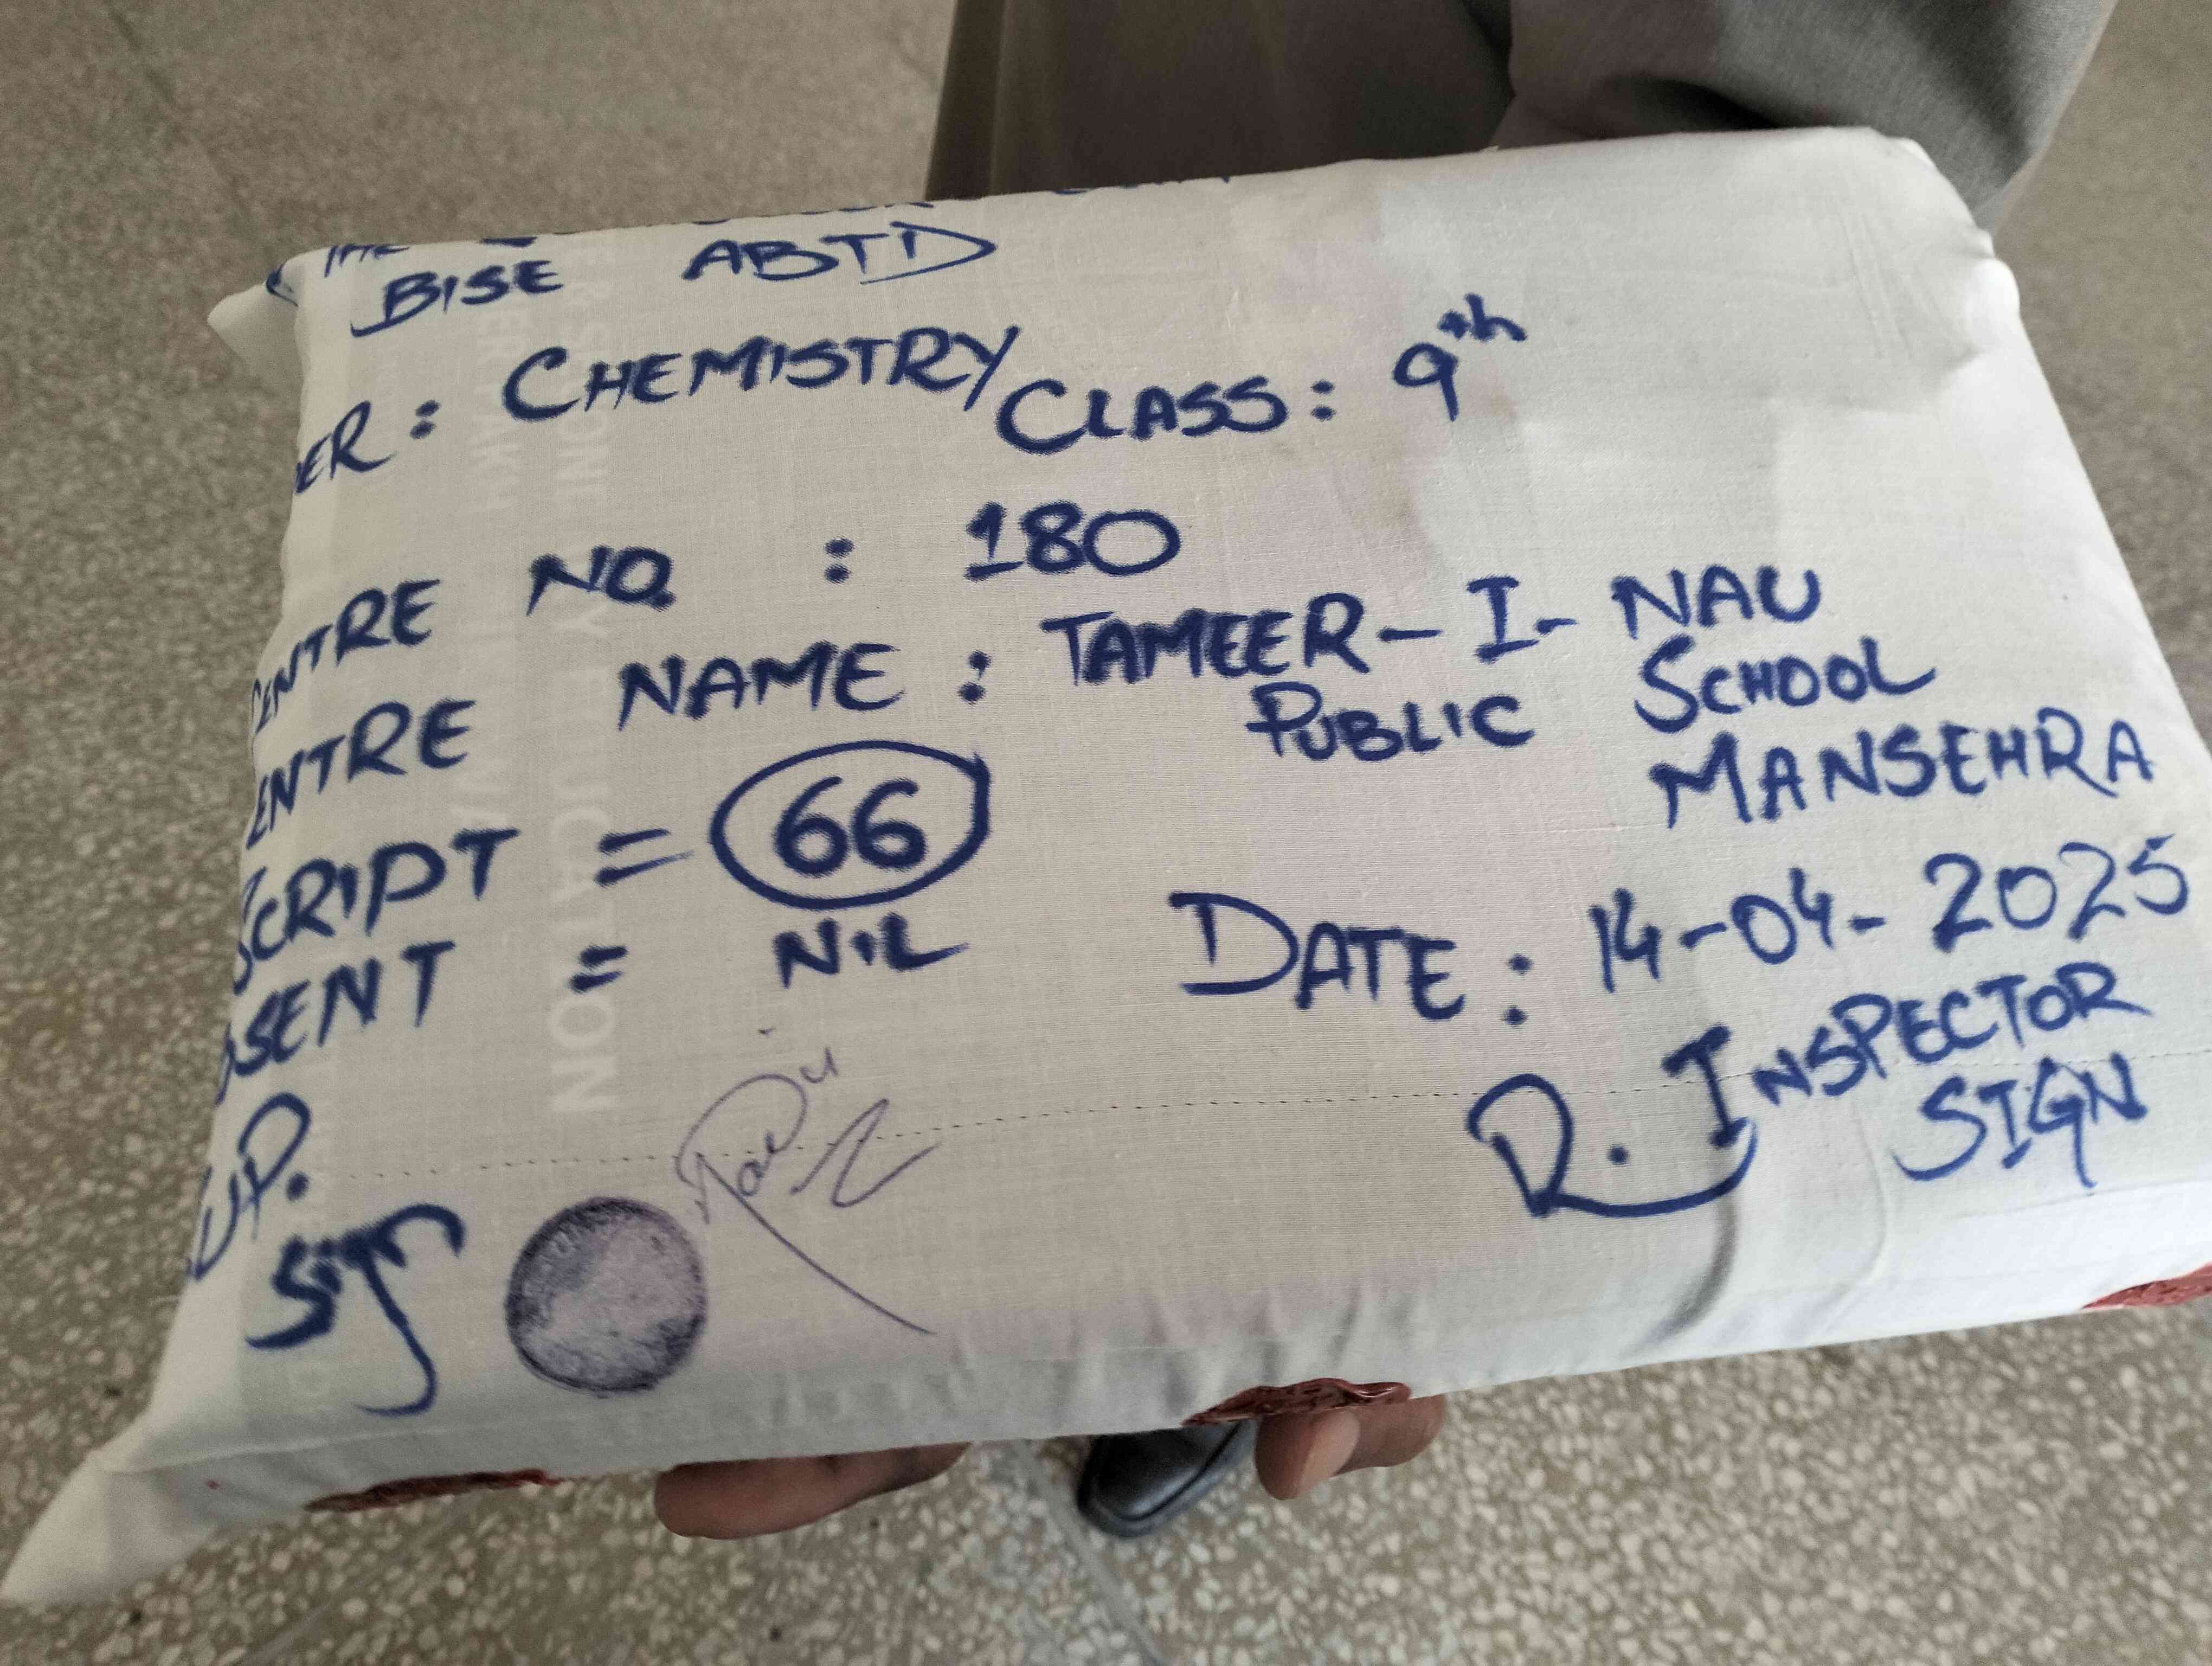 BISE ABTD
PER : CHEMISTRY CLASS : 9th
CENTRE NO. : 180
ENTRE NAME : TAMEER-I-NAU
PUBLIC SCHOOL
MANSEHRA
SCRIPT = 66
BSENT = NIL
DATE : 14-04-2025
SUP.
Sign
R. INSPECTOR
SIGN